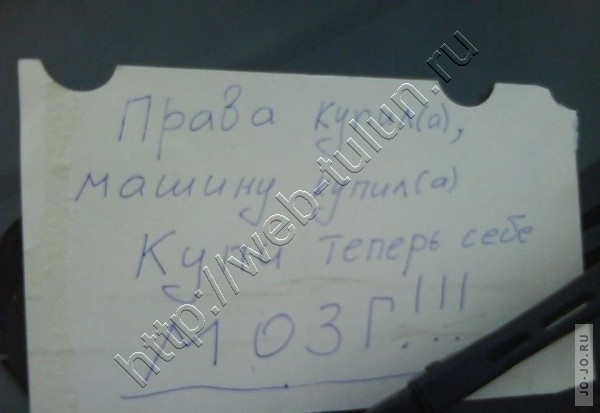 Права купил(а),
машину купил(а)
Купи теперь себе
МОЗГ!!!
http://web-tulun.ru
JO-JO.RU